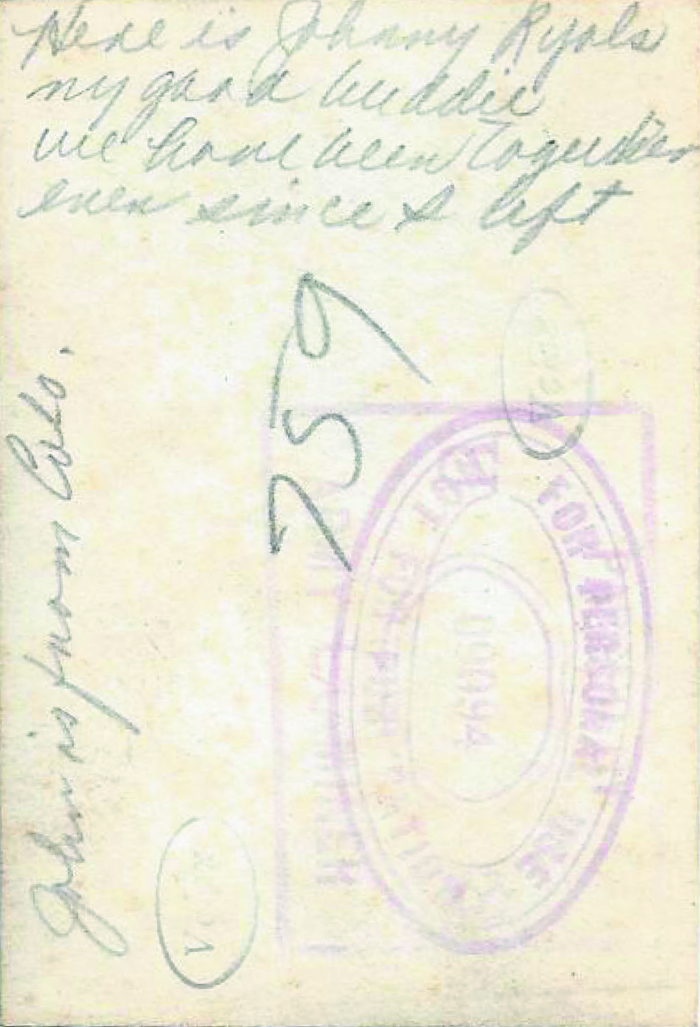 Here is Johnny Ryals
my good buddie
we have been together
ever since I left
759
John is from Colo.
FOR PERSONAL USE
NOT FOR PUBLICATION
00094
ARMY EXAMINER